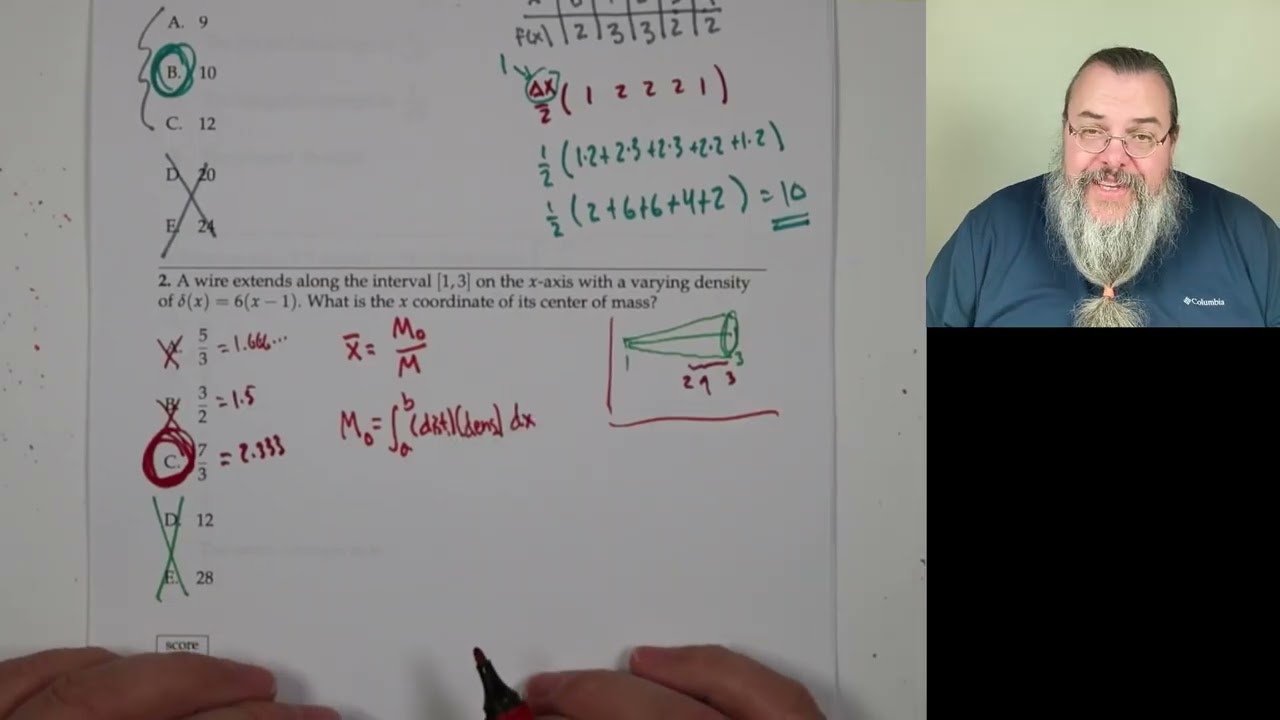 A. 9
B. 10
C. 12
D. 20
E. 24
F(x) 2 3 3 2 2
1
Δx/2 ( 1 2 2 2 1 )
1/2 (1·2+2·3+2·3+2·2+1·2)
1/2 (2+6+6+4+2) = 10
2. A wire extends along the interval [1, 3] on the x-axis with a varying density
of δ(x) = 6(x − 1). What is the x coordinate of its center of mass?
A. 5/3 = 1.666...
B. 3/2 = 1.5
C. 7/3 = 2.333
D. 12
E. 28
x̄ = M₀/M
M₀ = ∫ₐᵇ (dist)(dens) dx
1 3
2 3
score
Columbia